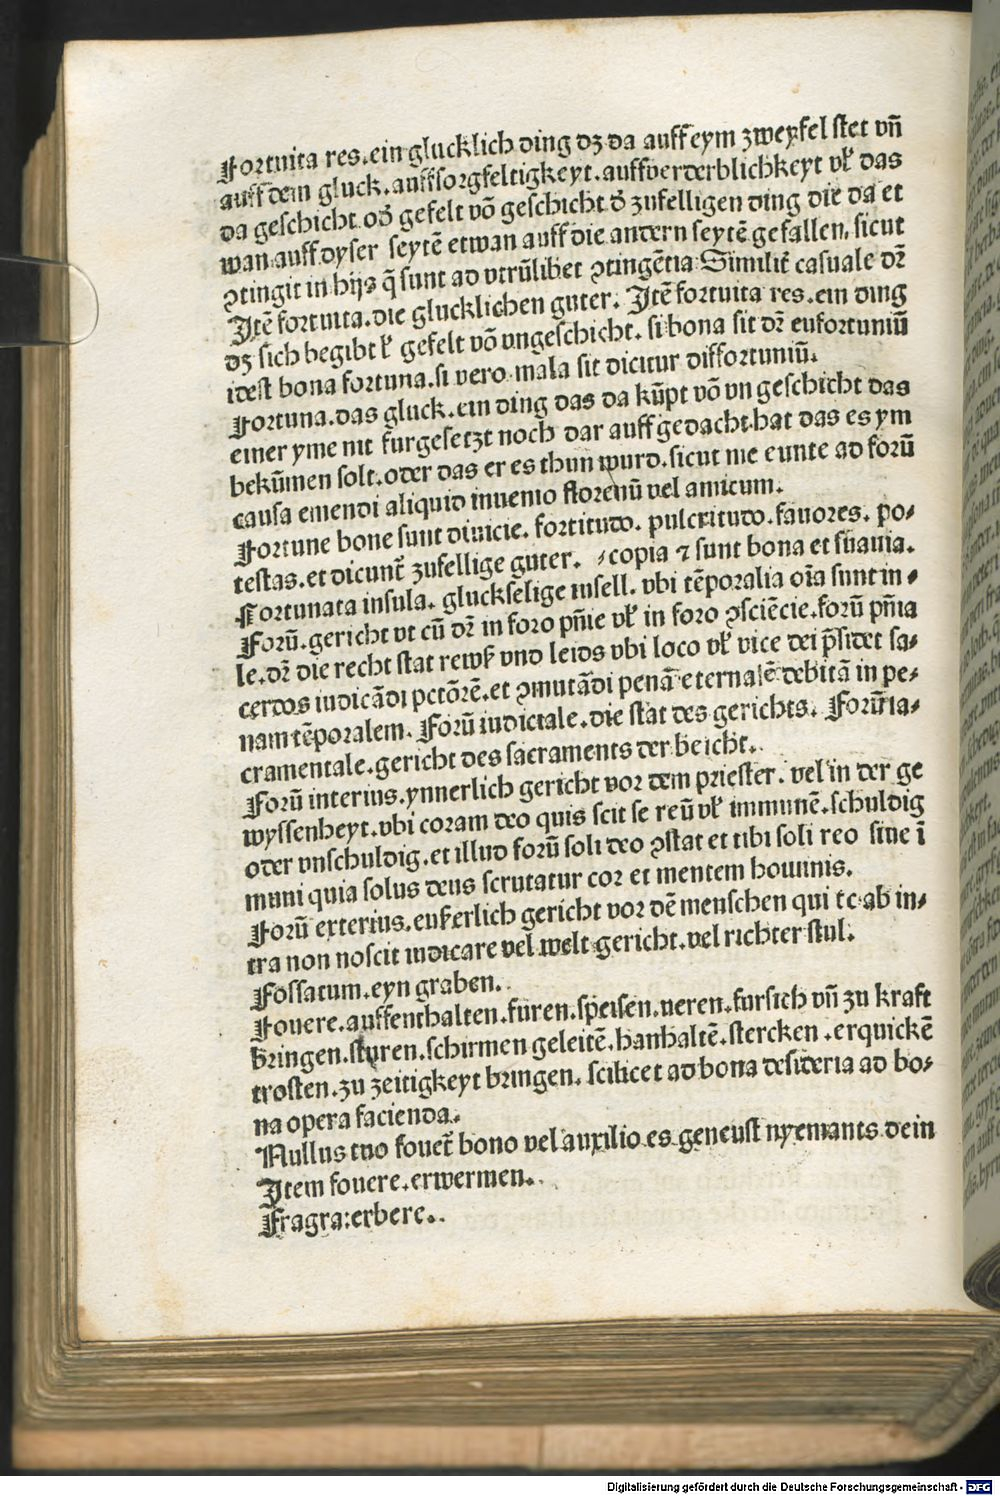 Fortuita res.ein glucklich ding dz da auff eym zweyfel stet vñ
auff dem gluck.auff sorgfeltigkeyt.auff verderblichkeyt vel das
da geschicht.oder gefelt võ geschicht der zufelligen ding die da et
wan auff dyser seytẽ etwan auff die andern seytẽ gefallen.sicut
ꝯtingit in hijs q̃ sunt ad vtrũlibet ꝯtingẽtia Similit̃ casuale dꝛ̃
Itẽ fortuita.die glucklichen guter. Itẽ fortuita res.ein ding
dz sich begibt vel gefelt võ vngeschicht. si bona sit dꝛ̃ eufortuniũ
idest bona fortuna.si vero mala sit dicitur diffortuniũ.
Fortuna.das gluck.ein ding das da kũpt võ vn geschicht das
einer yme nit furgesetzt noch dar auff gedacht hat das es ym
bekũmen solt.oder das er es thun wurd.sicut me eunte ad forũ
causa emendi aliquid inuenio florenũ vel amicum.
Fortune bone sunt diuicie. fortitudo. pulcritudo.fauores. po⸗
testas.et dicunt̃ zufellige guter. ⸗copia ⁊ sunt bona et suauia.
Fortunata insula. gluckselige insell. vbi tẽporalia oĩa sunt in⸗
Forũ.gericht vt cũ dꝛ̃ in foro pñie vel in foro ꝯsciẽcie.forũ pñia
le.dꝛ̃ die recht stat rewß vnd leids vbi loco vel vice dei p̃sidet sa⸗
cerdos iudicãdi pctõrẽ.et ꝯmutãdi penã eternalẽ debitã in pe⸗
nam tẽporalem. Forũ iudiciale.die stat des gerichts. Forũ sa⸗
cramentale.gericht des sacraments der beicht.
Forũ interius.ynnerlich gericht vor dem priester. vel in der ge
wyssenheyt.vbi coram deo quis scit se reũ vel immunẽ.schuldig
oder vnschuldig.et illud forũ soli deo ꝯstat et tibi soli reo siue ĩ
muni quia solus deus scrutatur cor et mentem hominis.
Forũ exterius.eußerlich gericht vor dẽ menschen qui tc̃ ab in⸗
tra non noscit iudicare vel welt gericht.vel richter stul.
Fossatum.eyn graben.
Fouere.auffenthalten.furen.speisen.neren.fursich vñ zu kraft
bringen.sturen.schirmen geleitẽ.hanhaltẽ.stercken.erquickẽ
trosten.zu zeitigkeyt bringen. scilicet ad bona desideria ad bo⸗
na opera facienda.
Nullus tuo fouet̃ bono vel auxilio es geneust nyemants dein
Item fouere.erwermen.
Fragra:erbere.
Digitalisierung gefördert durch die Deutsche Forschungsgemeinschaft - DFG